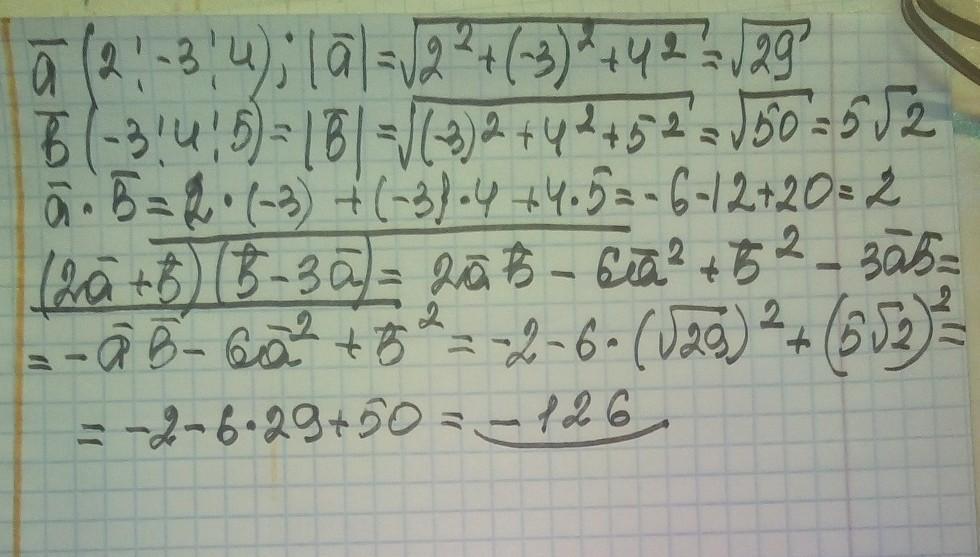 a̅ (2; -3; 4); |a̅| = √(2² + (-3)² + 4²) = √29
b̅ (-3; 4; 5) = |b̅| = √((-3)² + 4² + 5²) = √50 = 5√2
a̅ · b̅ = 2 · (-3) + (-3) · 4 + 4 · 5 = -6 - 12 + 20 = 2
(2a̅ + b̅)(b̅ - 3a̅) = 2a̅b̅ - 6a̅² + b̅² - 3a̅b̅ =
= -a̅b̅ - 6a̅² + b̅² = -2 - 6 · (√29)² + (5√2)² =
= -2 - 6 · 29 + 50 = -126